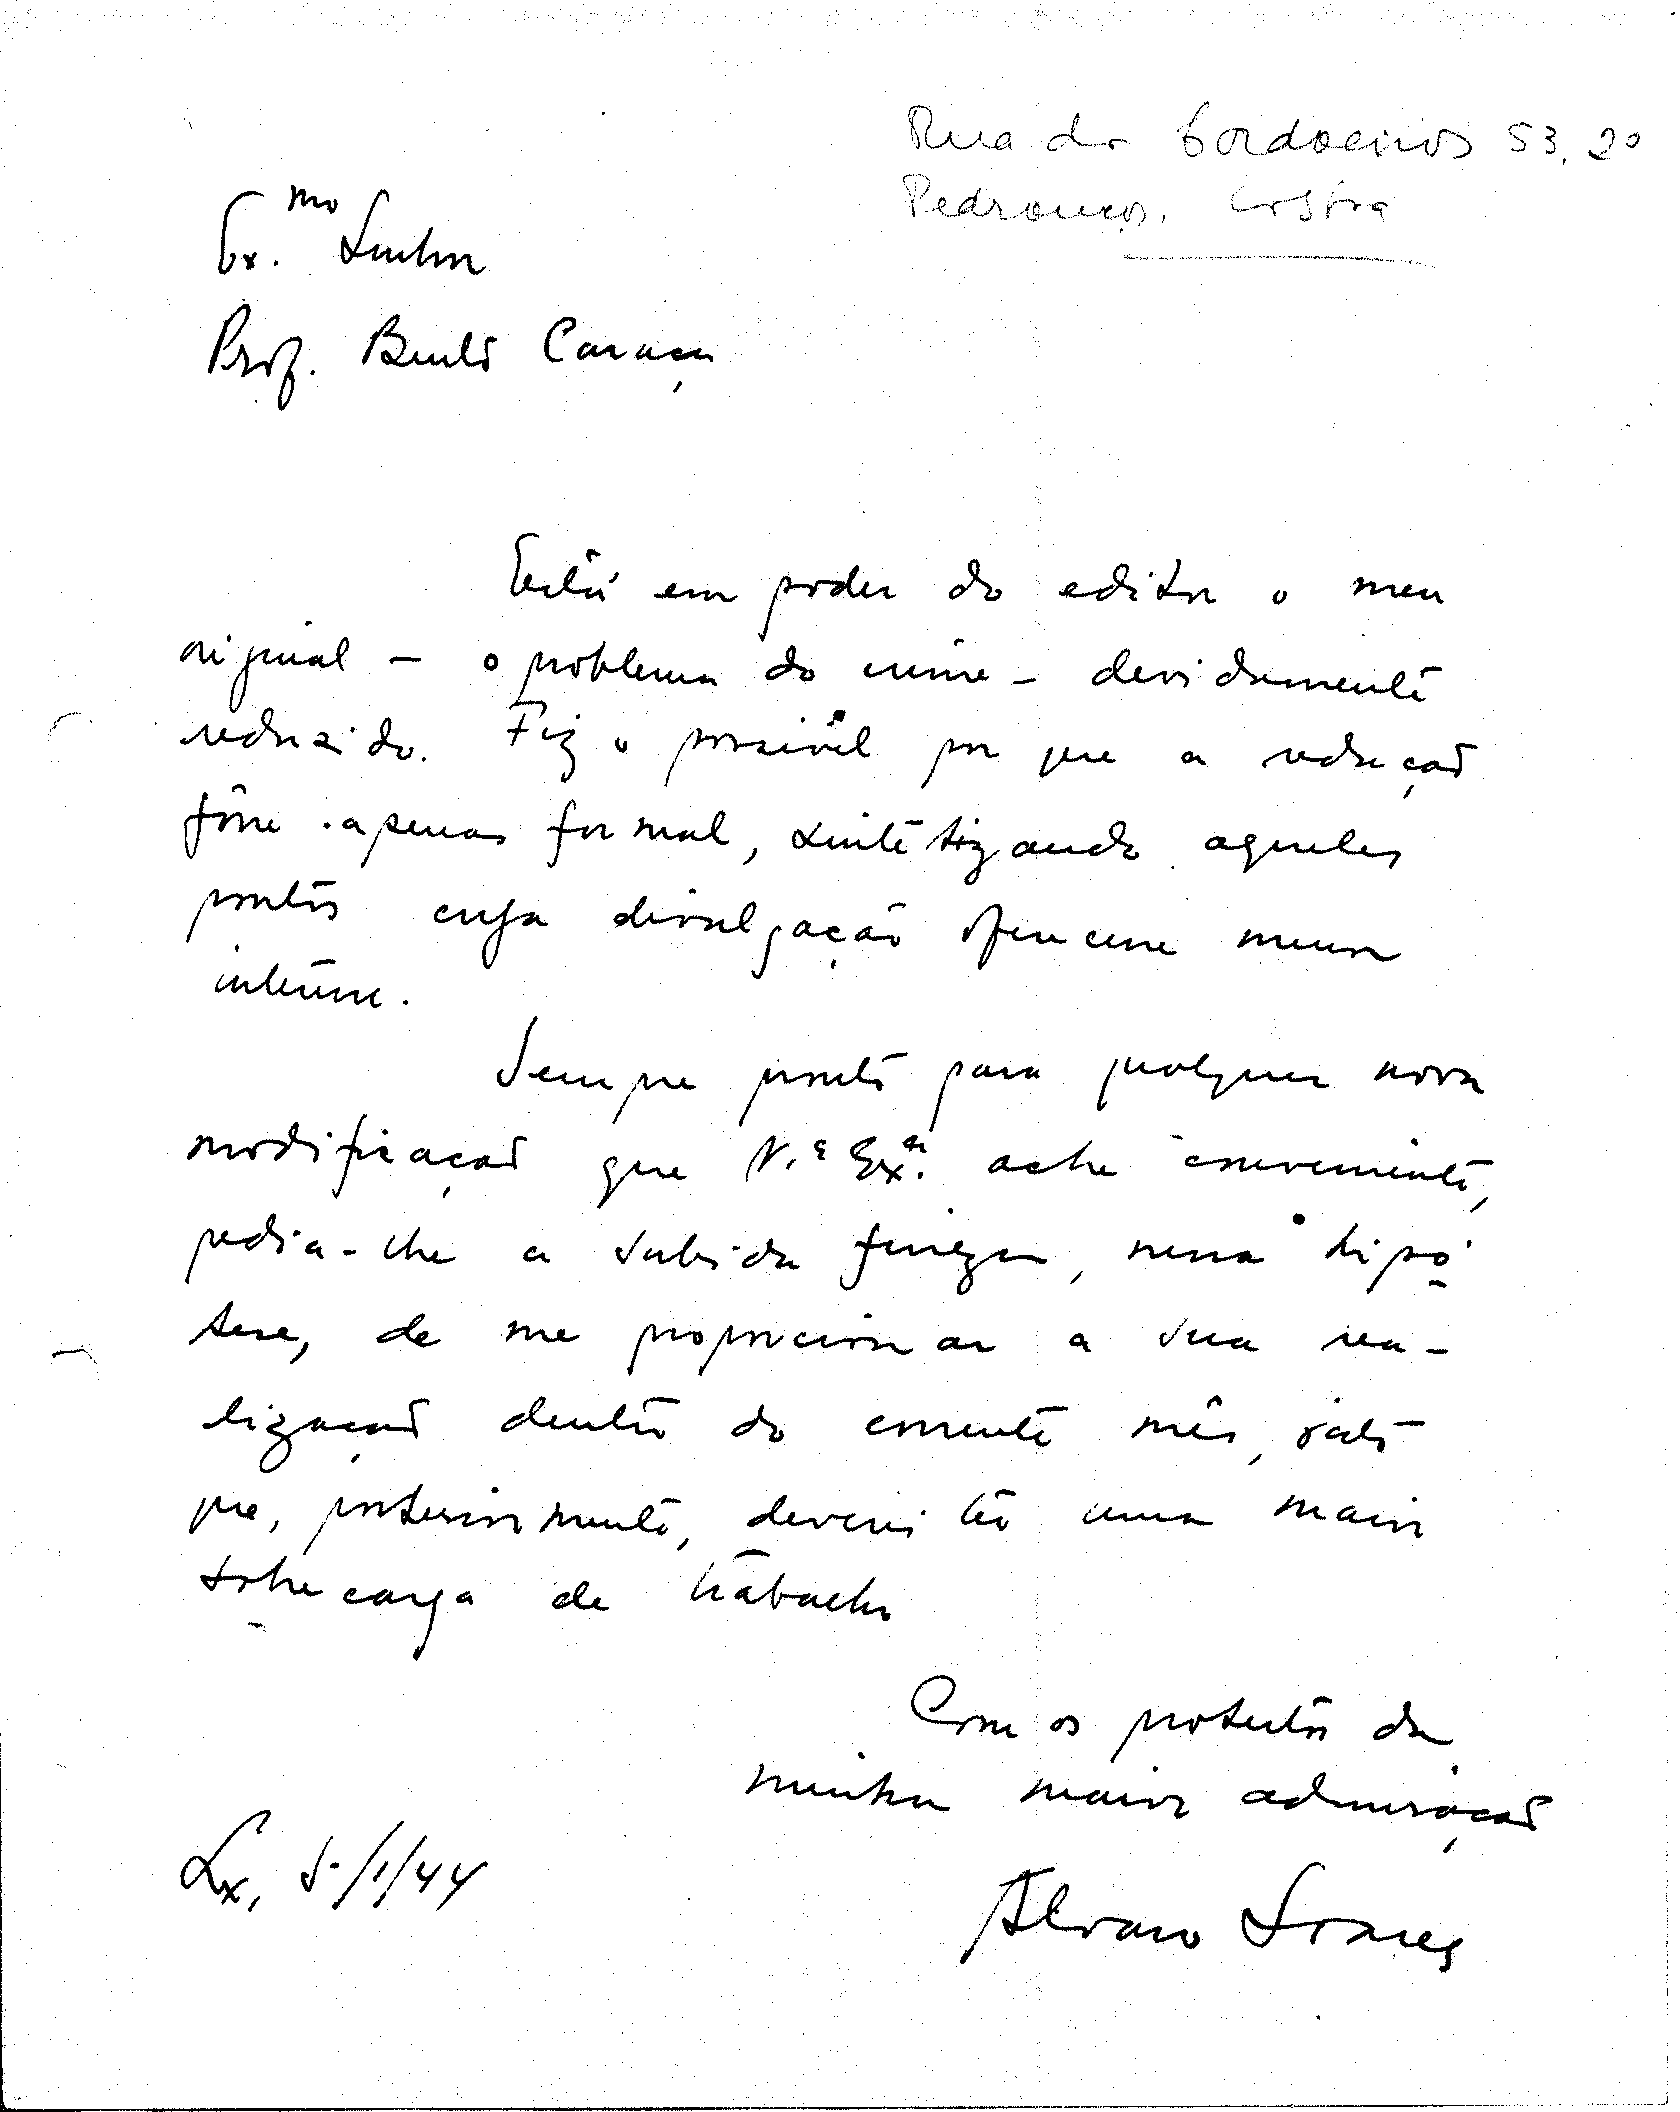 Rua dos Cordoeiros 53, 2º
Pedrouços. Lisboa
Ex.mo Senhor
Prof. Bento Caraça
Está em poder do editor o meu
original – o problema do crime – devidamente
reduzido. Fiz o possível por que a redução
fôsse apenas formal, sintetizando aqueles
pontos cuja divulgação oferecesse menor
interesse.
Sempre pronto para qualquer nova
modificação que V.ª Ex.ª ache conveniente,
pedia-lhe a subida fineza, nessa hipó
tese, de me proporcionar a sua rea-
lização dentro do corrente mês, visto
que, posteriormente, deverei ter uma maior
sobrecarga de trabalho
Com os protestos da
minha maior admiração
Lx, 5/1/44
Alvaro Soares